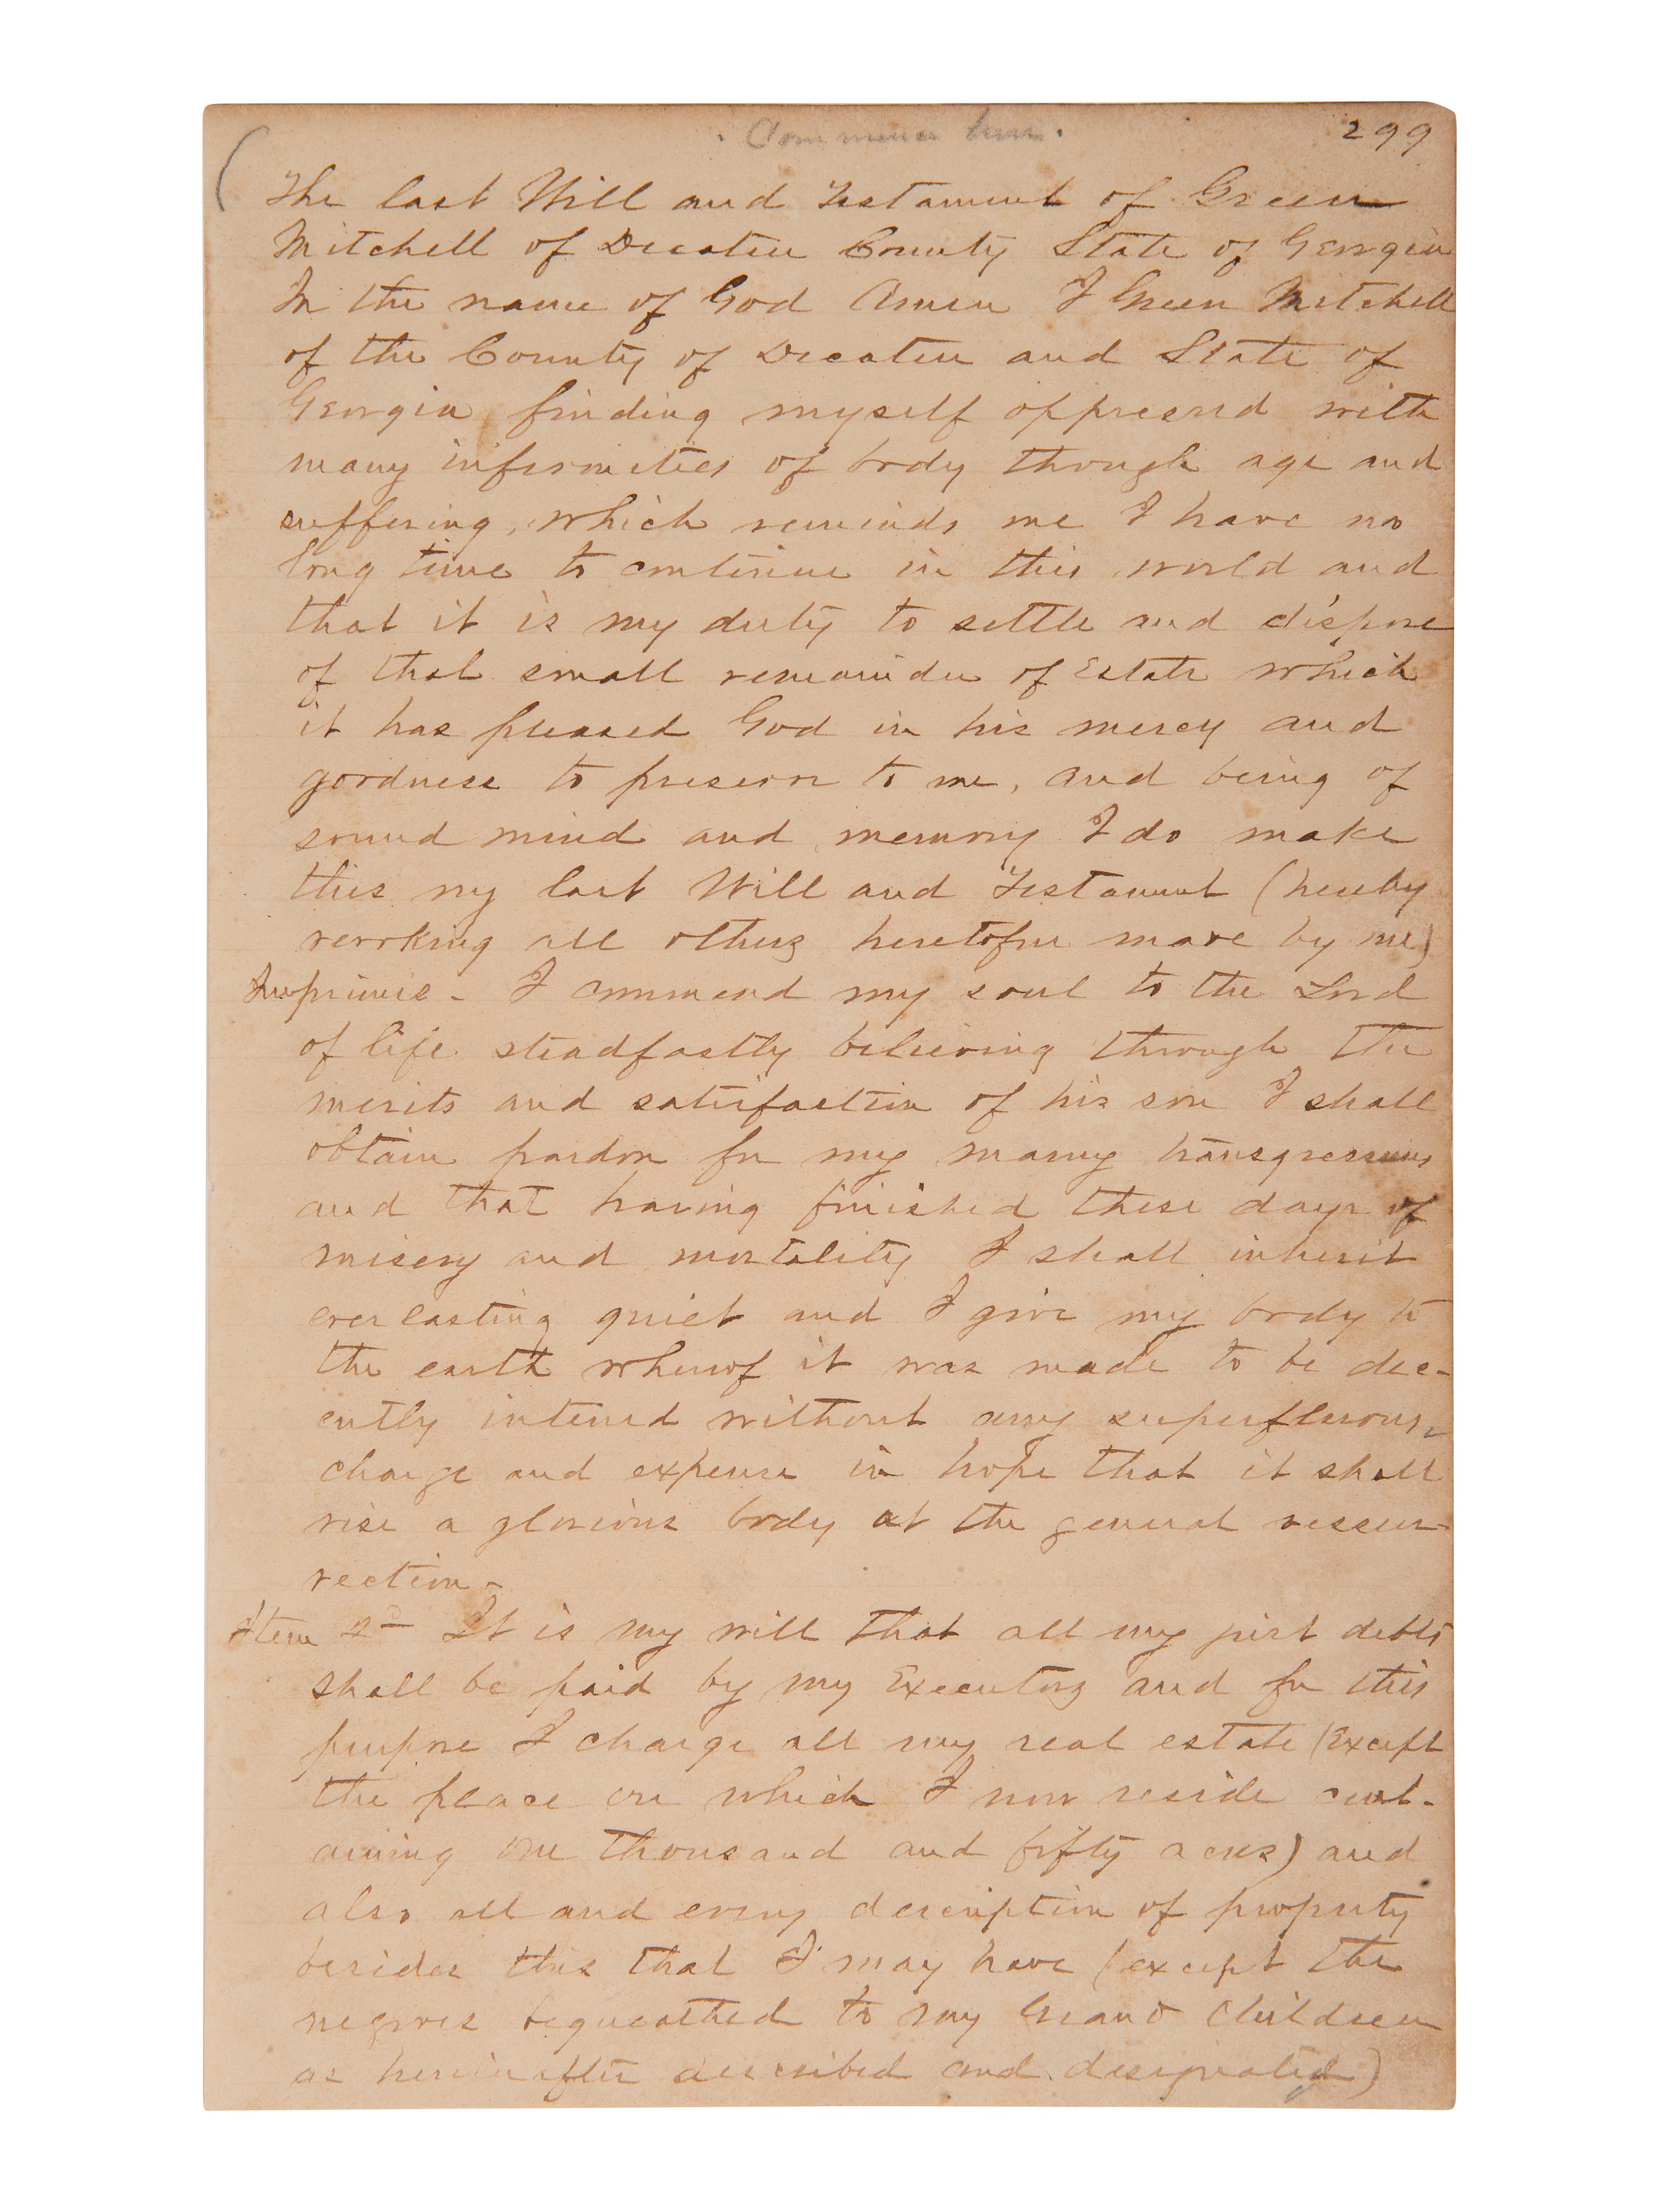 Commence here.
299
The last Will and Testament of Green
Mitchell of Decatur County State of Georgia
In the name of God Amen I Green Mitchell
of the County of Decatur and State of
Georgia finding myself oppressed with
many infirmities of body through age and
suffering, which reminds me I have no
long time to continue in this world and
that it is my duty to settle and dispose
of that small remainder of Estate which
it has pleased God in his mercy and
goodness to preserve to me, and being of
sound mind and memory I do make
this my last Will and Testament (hereby
revoking all others heretofore made by me)
Imprimis - I commend my soul to the Lord
of life steadfastly believing through the
merits and satisfaction of his son I shall
obtain pardon for my many transgressions
and that having finished these days of
misery and mortality I shall inherit
everlasting quiet and I give my body to
the earth whereof it was made to be dec-
ently interred without any superfluous
charge and expense in hope that it shall
rise a glorious body at the general ressur-
rection -
Item 2nd It is my will that all my just debts
shall be paid by my Executors and for this
purpose I charge all my real estate (Except
the place on which I now reside cont-
aining one thousand and fifty acres) and
also all and every description of property
besides this that I may have (except the
negroes bequeathed to my Grand Children
as hereinafter described and designated)